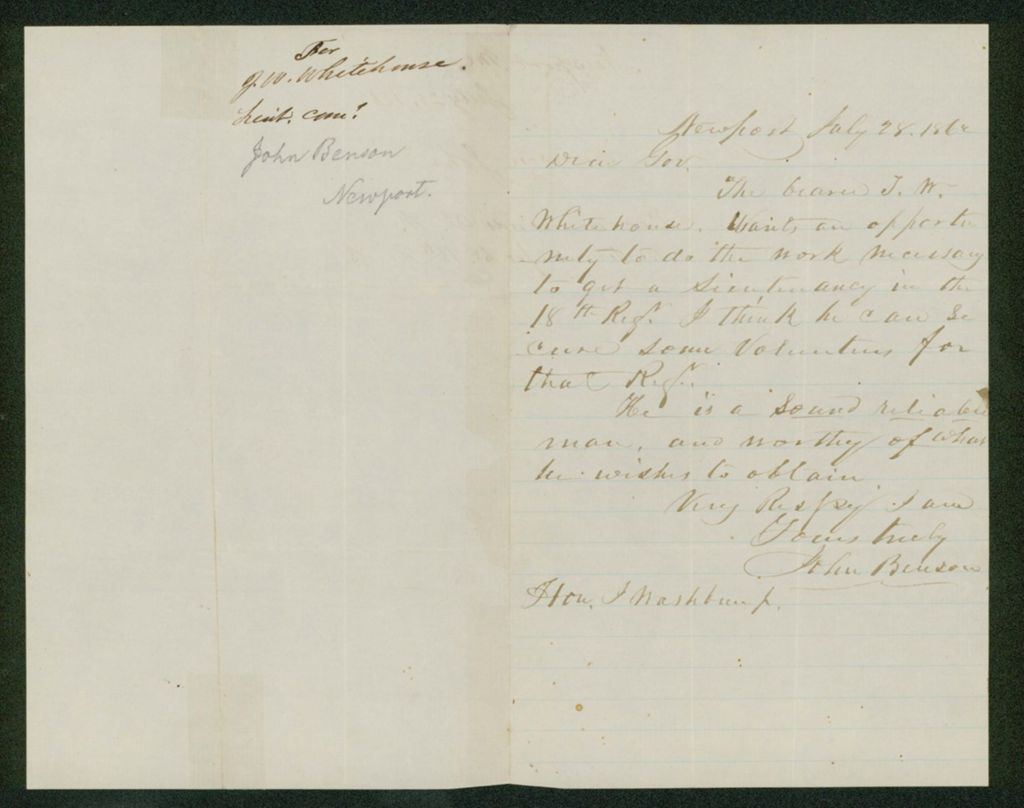 For
J. W. Whitehouse.
Lieut. com.
John Benson
Newport.
Newport July 28. 186
Dear Gov.
The bearer J. W.
Whitehouse. Wants an opportu
nity to do the work necessary
to get a Lieutenancy in the
18th Regt. I think he can se
cure some Volunteers for
that Regt.
He is a sound reliable
man, and worthy of what
he wishes to obtain
Very Respy I am
Yours truly
John Benson
Hon. I Washburn Jr.